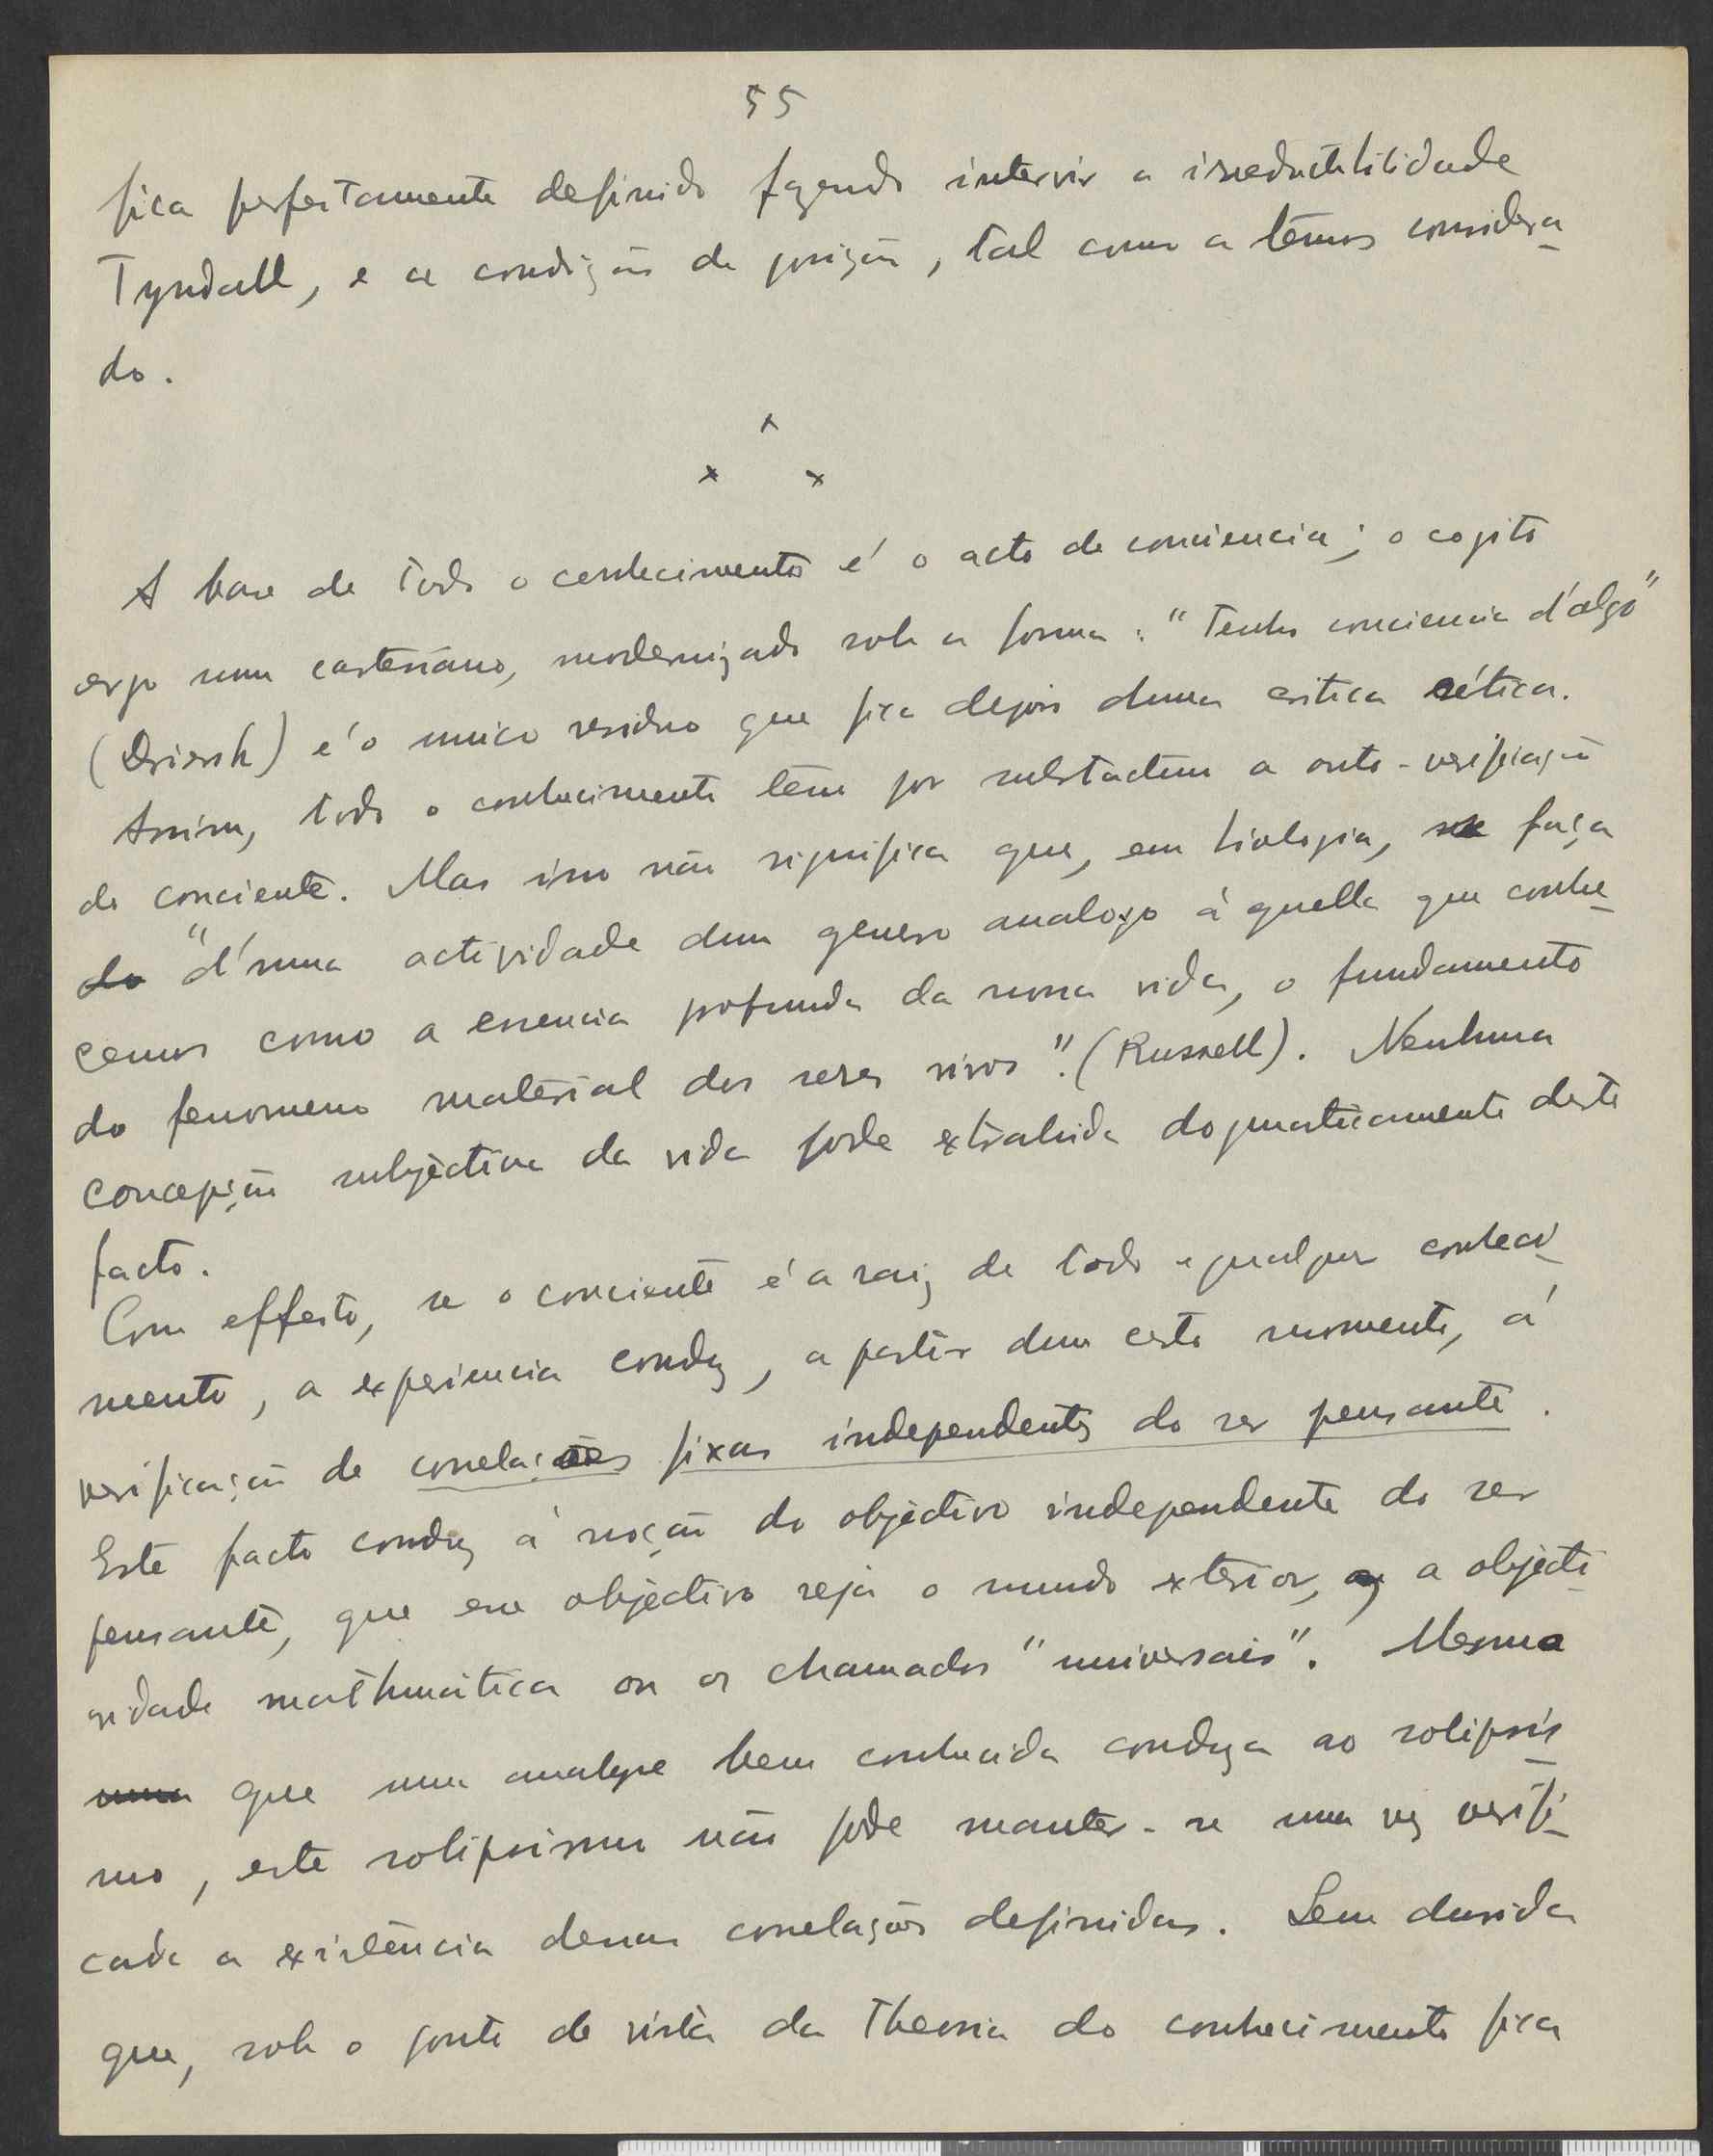 55
fica perfeitamente definido fazendo intervir a irreductibilidade
Tyndall, e a condição de posição, tal como a têmos considera-
do.
x
x x
A base de todo o conhecimento é o acto de conciencia; o cogito
ergo sum cartesiano, modernizado sob a forma: "Tenho conciencia d'algo"
(Driersh) é o unico residuo que fica depois duma critica sética.
Assim, todo o conhecimento têm por substactum a auto-verificação
do conciente. Mas isso não significa que, em biologia, se faça
do "d'uma actividade dum genero analogo á quella que conhe-
cemos como a essencia profunda da nossa vida, o fundamento
do fenomeno material dos seres vivos". (Russell). Nenhuma
concepção subjectiva da vida pode extrahida dogmaticamente deste
facto.
Com effeito, se o conciente é a raiz de todo e qualquer conheci-
mento, a experiencia conduz, a partir dum certo momento, á
verificação de correlações fixas independentes do ser pensante.
Este facto conduz á noção do objectivo independente do ser
pensante, que esse objectivo seja o mundo exterior, a objecti-
vidade mathmática ou os chamados "universais". Mesmo
que uma analyse bem conhecida conduza ao solipsis-
mo, este solipsismo não pode manter-se uma vez verifi-
cada a existência dessas correlações definidas. Sem duvida
que, sob o ponto de vista da Theoria do conhecimento fica